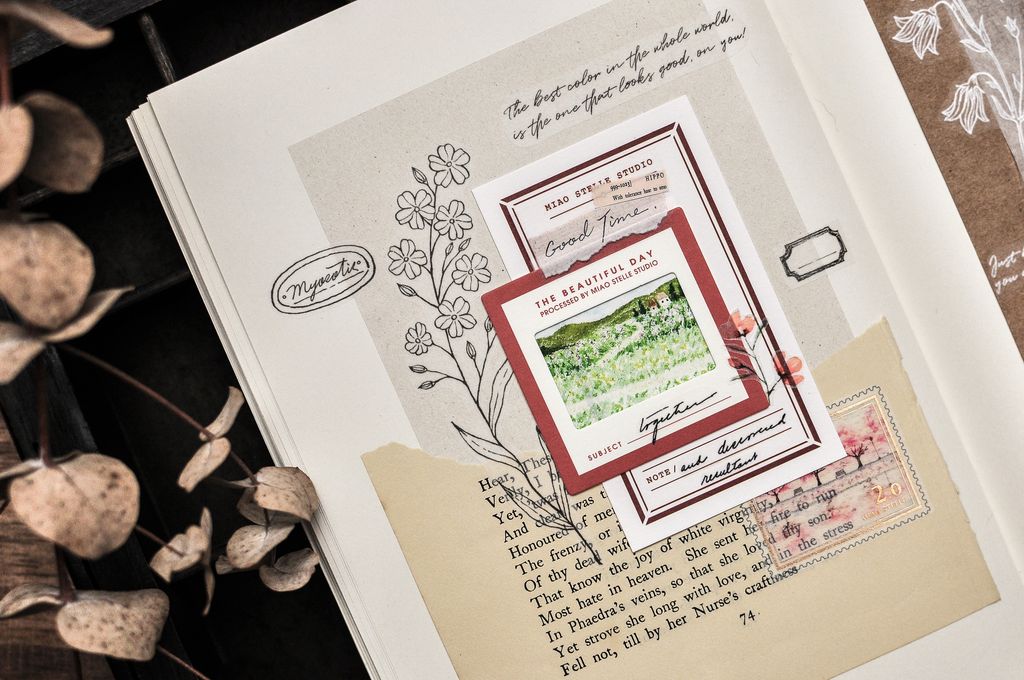 The best color in the whole world,
is the one that looks good, on you!
MIAO STELLE STUDIO
HIPPO
With tolerance
Good Time.
Myosotis
THE BEAUTIFUL DAY
PROCESSED BY MIAO STELLE STUDIO
SUBJECT together
NOTE! and discovered
resultant
Just
you
20
fire to run
d thy son?
in the stress
Hear, These
Verily, I
Yet, was
And was t
Honoured of me
The frenzy, or i
Of thy dear wife
That know the joy of white virginity,
Most hate in heaven. She sent
In Phaedra's veins, so that she lo
Yet strove she long with love, and
Fell not, till by her Nurse's craftiness
74